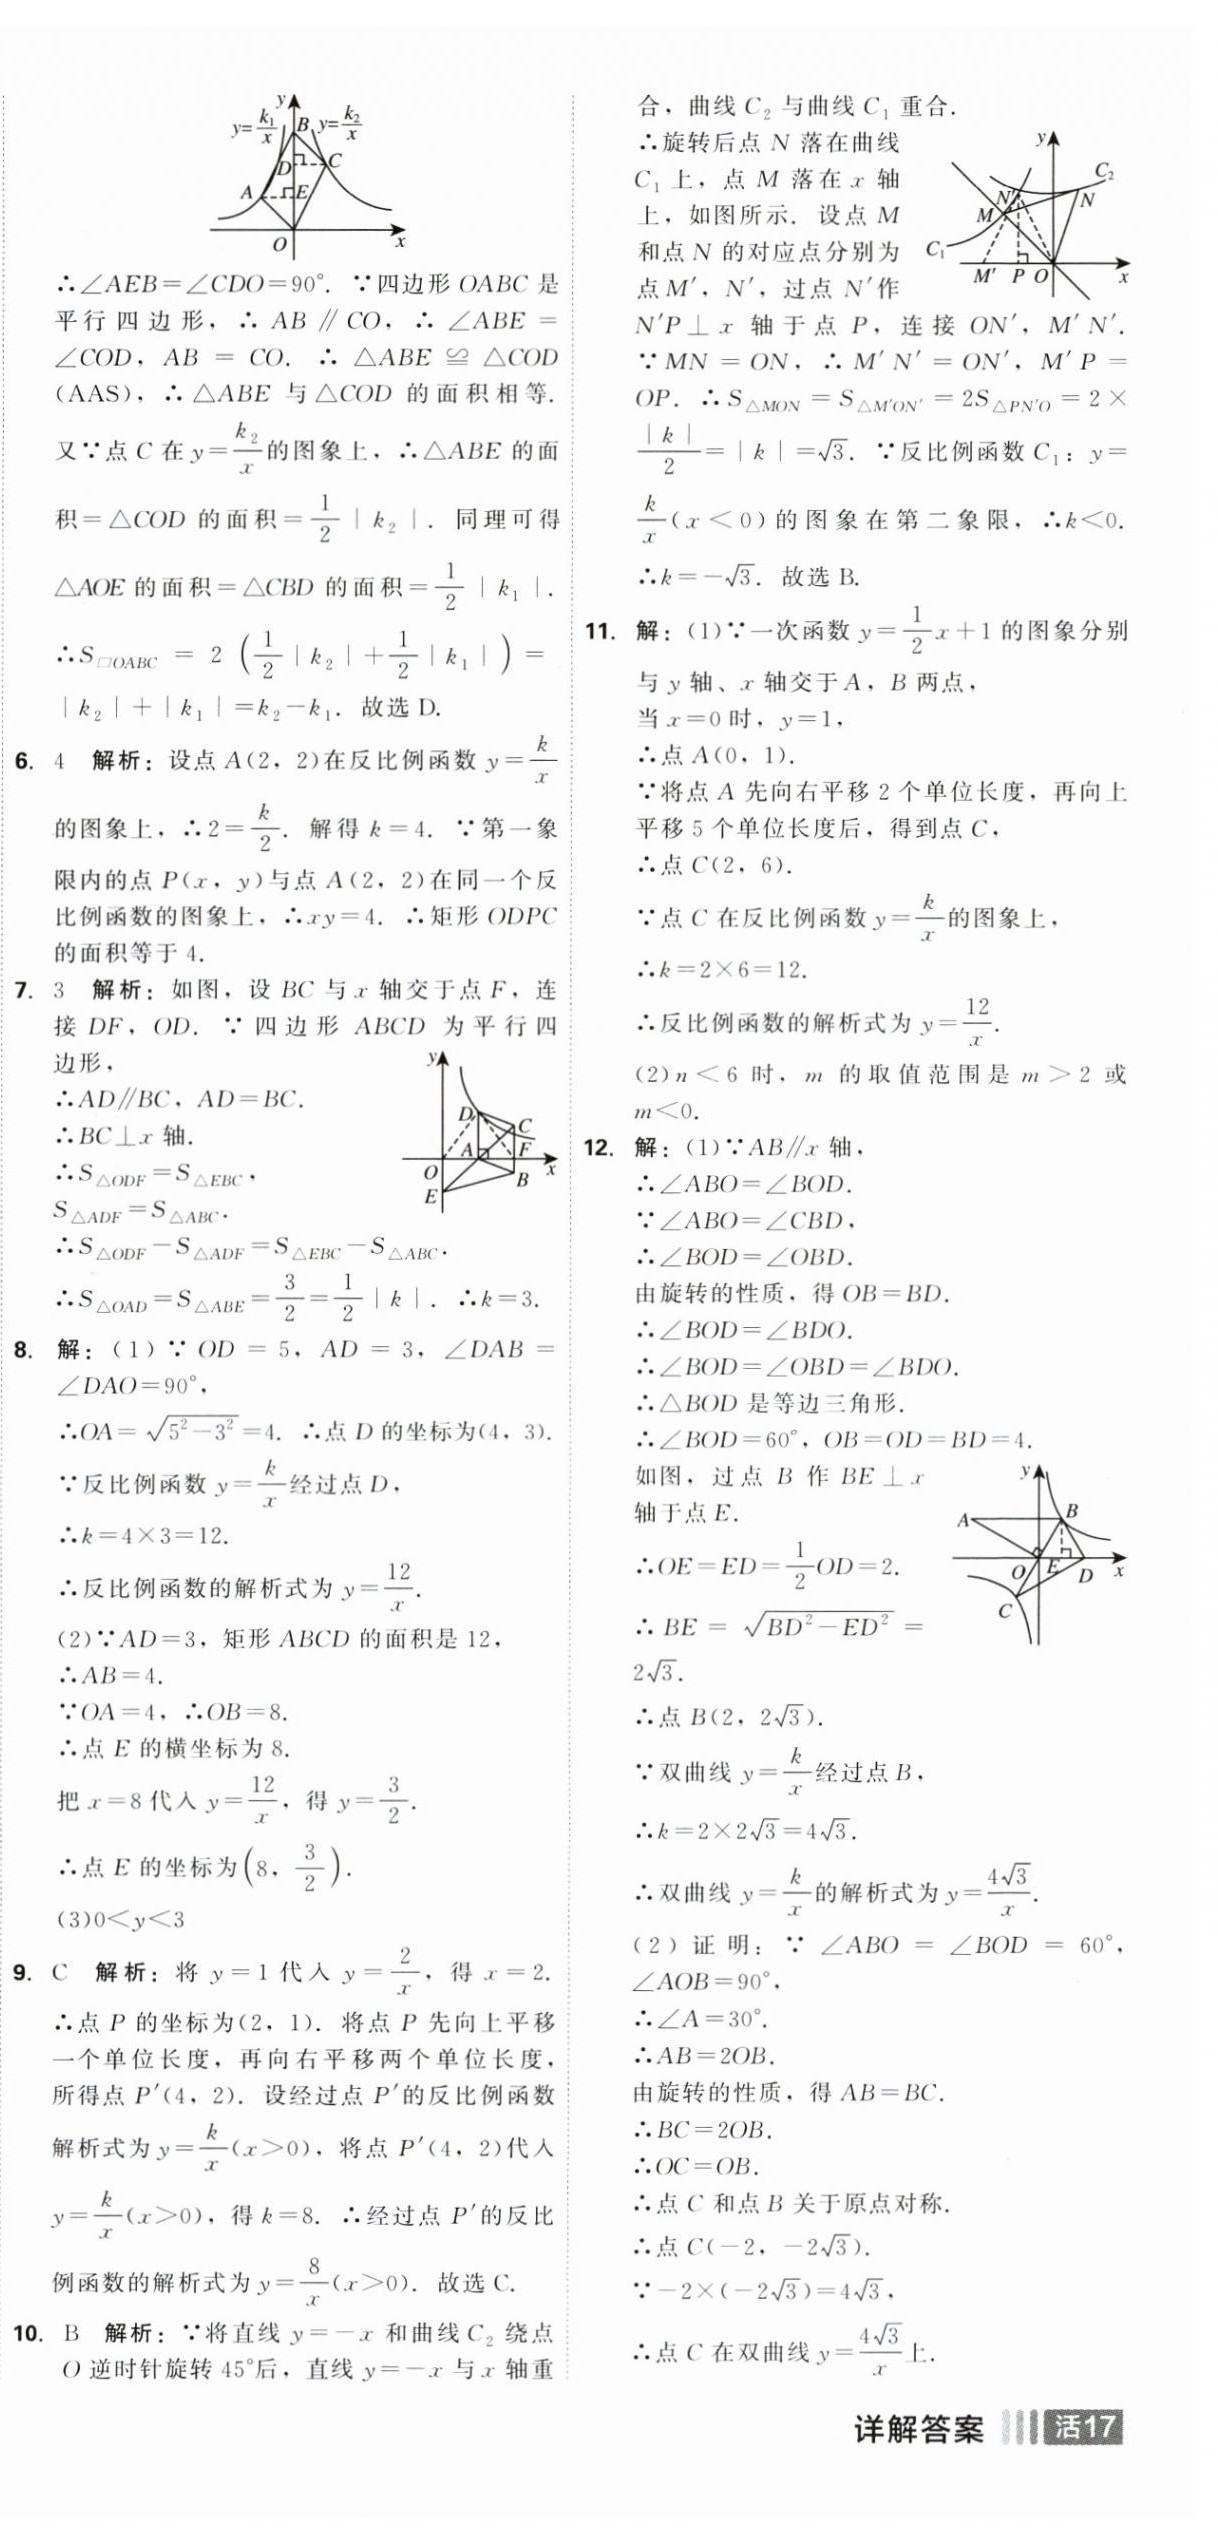 y
y=k₁/x B y=k₂/x
D C
A E
O x
∴∠AEB=∠CDO=90°. ∵四边形 OABC 是
平行四边形，∴ AB∥CO，∴ ∠ABE =
∠COD，AB = CO. ∴ △ABE ≌ △COD
(AAS)，∴△ABE 与△COD 的面积相等.
又∵点 C 在 y=k₂/x的图象上，∴△ABE 的面
积=△COD 的面积=1/2｜k₂｜. 同理可得
△AOE 的面积=△CBD 的面积=1/2｜k₁｜.
∴S□OABC = 2(1/2｜k₂｜+1/2｜k₁｜) =
｜k₂｜+｜k₁｜=k₂-k₁. 故选 D.
6. 4 解析：设点 A(2，2)在反比例函数 y=k/x
的图象上，∴2=k/2. 解得 k=4. ∵第一象
限内的点 P(x，y)与点 A(2，2)在同一个反
比例函数的图象上，∴xy=4. ∴矩形 ODPC
的面积等于 4.
7. 3 解析：如图，设 BC 与 x 轴交于点 F，连
接 DF，OD. ∵四边形 ABCD 为平行四
边形，
∴AD∥BC，AD=BC.
∴BC⊥x 轴.
∴S△ODF=S△EBC，
S△ADF=S△ABC.
y
D C
A F
O B x
E
∴S△ODF-S△ADF=S△EBC-S△ABC.
∴S△OAD=S△ABE=3/2=1/2｜k｜. ∴k=3.
8. 解：(1)∵ OD = 5，AD = 3，∠DAB =
∠DAO=90°，
∴OA=√(5²-3²)=4. ∴点 D 的坐标为(4，3).
∵反比例函数 y=k/x经过点 D，
∴k=4×3=12.
∴反比例函数的解析式为 y=12/x.
(2)∵AD=3，矩形 ABCD 的面积是 12，
∴AB=4.
∵OA=4，∴OB=8.
∴点 E 的横坐标为 8.
把 x=8代入 y=12/x，得 y=3/2.
∴点 E 的坐标为(8，3/2).
(3)0<y<3
9. C 解析：将 y=1代入 y=2/x，得 x=2.
∴点 P 的坐标为(2，1). 将点 P 先向上平移
一个单位长度，再向右平移两个单位长度，
所得点 P′(4，2). 设经过点 P′的反比例函数
解析式为 y=k/x(x>0)，将点 P′(4，2)代入
y=k/x(x>0)，得 k=8. ∴经过点 P′的反比
例函数的解析式为 y=8/x(x>0). 故选 C.
10. B 解析：∵将直线 y=-x 和曲线 C₂ 绕点
O 逆时针旋转 45°后，直线 y=-x 与 x 轴重
合，曲线 C₂ 与曲线 C₁ 重合.
∴旋转后点 N 落在曲线
C₁ 上，点 M 落在 x 轴
上，如图所示. 设点 M
和点 N 的对应点分别为
点M′，N′，过点 N′作
y
C₂
N′ N
M
C₁
M′ P O x
N′P⊥x 轴于点 P，连接 ON′，M′N′.
∵MN=ON，∴M′N′=ON′，M′P=
OP. ∴S△MON=S△M′ON′=2S△PN′O=2×
｜k｜/2=｜k｜=√3. ∵反比例函数 C₁：y=
k/x(x<0)的图象在第二象限，∴k<0.
∴k=-√3. 故选 B.
11. 解：(1)∵一次函数 y=1/2x+1 的图象分别
与 y 轴、x 轴交于A，B 两点，
当 x=0时，y=1，
∴点 A(0，1).
∵将点 A 先向右平移 2 个单位长度，再向上
平移 5 个单位长度后，得到点 C，
∴点 C(2，6).
∵点 C 在反比例函数 y=k/x的图象上，
∴k=2×6=12.
∴反比例函数的解析式为 y=12/x.
(2)n<6 时，m 的取值范围是 m>2 或
m<0.
12. 解：(1)∵AB∥x 轴，
∴∠ABO=∠BOD.
∵∠ABO=∠CBD，
∴∠BOD=∠OBD.
由旋转的性质，得 OB=BD.
∴∠BOD=∠BDO.
∴∠BOD=∠OBD=∠BDO.
∴△BOD 是等边三角形.
∴∠BOD=60°，OB=OD=BD=4.
如图，过点 B 作 BE⊥x
轴于点 E.
∴OE=ED=1/2OD=2.
∴ BE = √(BD²-ED²) =
2√3.
y
A B
O E D x
C
∴点 B(2，2√3).
∵双曲线 y=k/x经过点 B，
∴k=2×2√3=4√3.
∴双曲线 y=k/x的解析式为 y=4√3/x.
(2)证明：∵ ∠ABO = ∠BOD = 60°，
∠AOB=90°，
∴∠A=30°.
∴AB=2OB.
由旋转的性质，得 AB=BC.
∴BC=2OB.
∴OC=OB.
∴点 C 和点 B 关于原点对称.
∴点 C(-2，-2√3).
∵-2×(-2√3)=4√3，
∴点 C 在双曲线 y=4√3/x上.
详解答案 活17